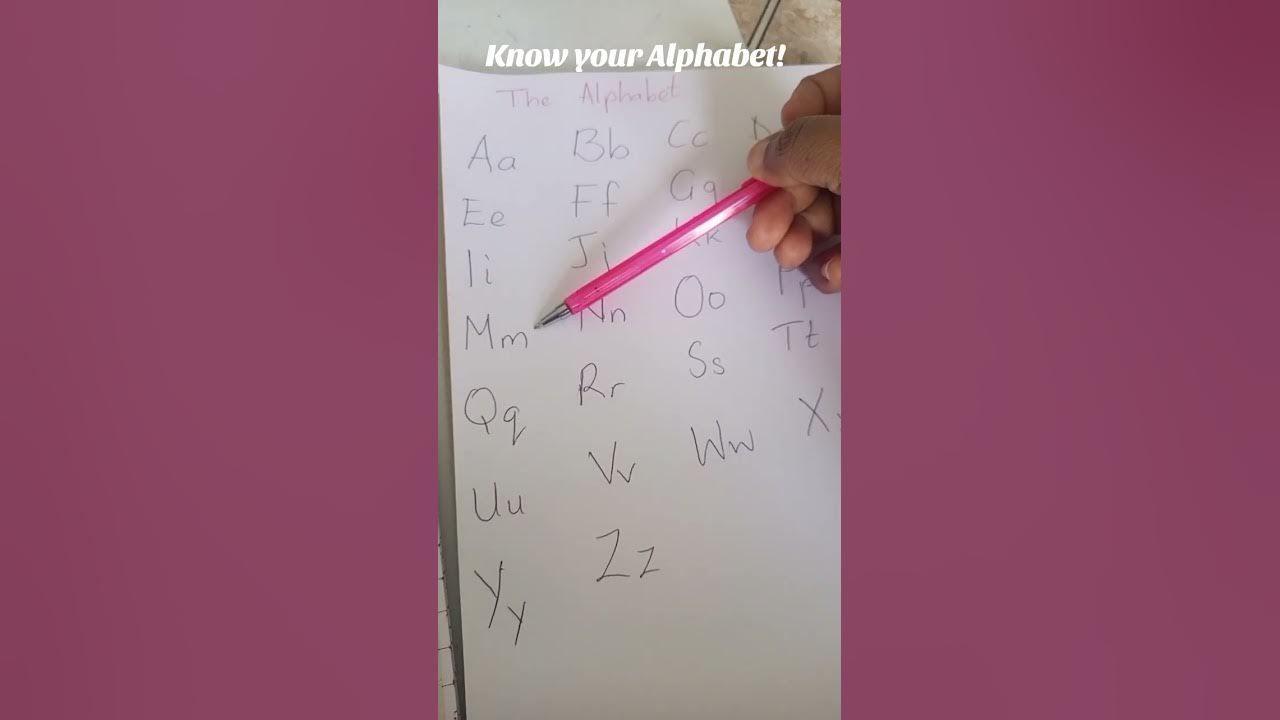 Know your Alphabet!
The Alphabet
Aa Bb Cc D
Ee Ff Gg
Ii Jj Kk
Mm Nn Oo Pp
Qq Rr Ss Tt
Uu Vv Ww X
Yy Zz